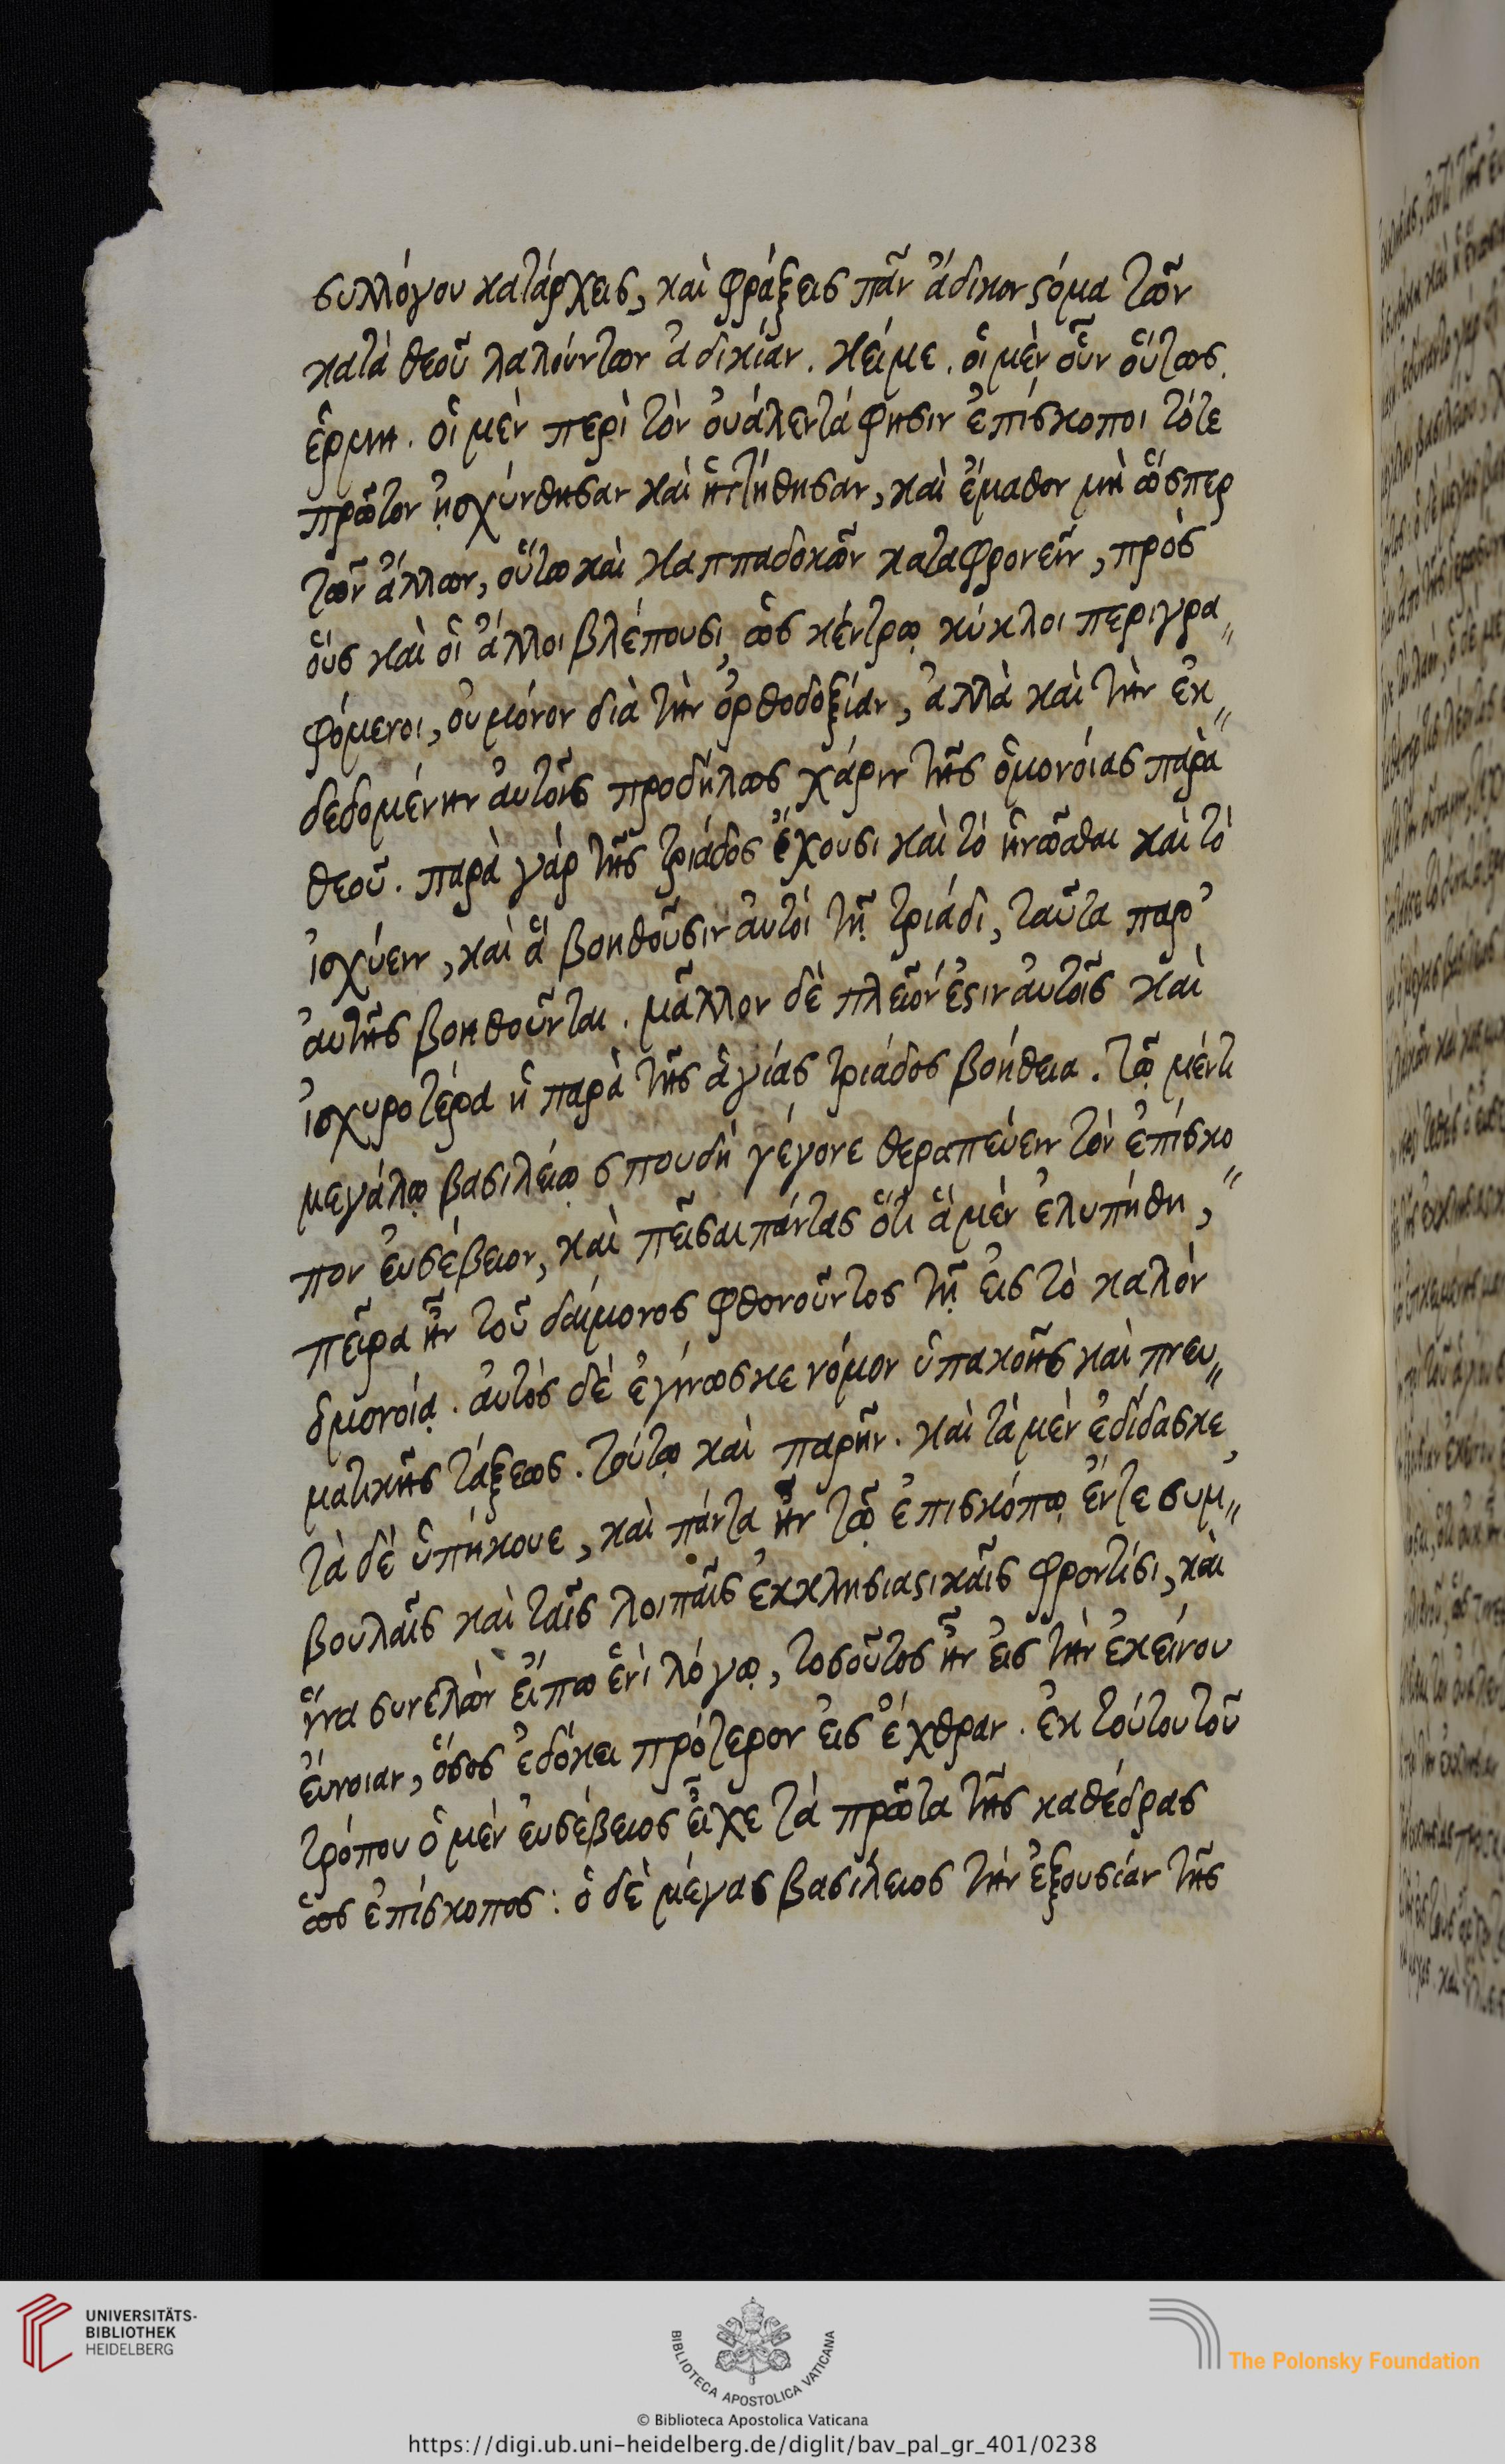 συλλόγου κατάρχεις, καὶ φράξεις πᾶν ἄδικον στόμα τῶν
κατὰ θεοῦ λαλούντων ἀδικίαν. κείμε. οἱ μὲν οὖν οὕτως.
ἑρμη. οἱ μὲν περὶ τὸν οὐάλεντά φησιν ἐπίσκοποι τότε
πρῶτον ᾐσχύνθησαν καὶ ἡττήθησαν, καὶ ἔμαθον μὴ ὥσπερ
τῶν ἄλλων, οὕτω καὶ καππαδοκῶν καταφρονεῖν, πρὸς
οὓς καὶ οἱ ἄλλοι βλέπουσι, ὡς κέντρῳ κύκλοι περιγρα„
φόμενοι, οὐ μόνον διὰ τὴν ὀρθοδοξίαν, ἀλλὰ καὶ τὴν ἐκ„
δεδομένην αὐτοῖς προδήλως χάριν τῆς ὁμονοίας παρὰ
θεοῦ. παρὰ γὰρ τῆς τριάδος ἔχουσι καὶ τὸ ἡνῶσθαι καὶ τὸ
ἰσχύειν, καὶ ἃ βοηθοῦσιν αὐτοὶ τῇ τριάδι, ταῦτα παρ'
αὐτῆς βοηθοῦνται. μᾶλλον δὲ πλεῖόν ἐστιν αὐτοῖς καὶ
ἰσχυροτέρα ἡ παρὰ τῆς ἁγίας τριάδος βοήθεια. τῷ μέντι
μεγάλῳ βασιλείῳ σπουδὴ γέγονε θεραπεύειν τὸν ἐπίσκο„
πον εὐσέβειον, καὶ πεῖσαι πάντας ὅτι ἃ μὲν ἐλυπήθη,
πεῖρα ἦν τοῦ δαίμονος φθονοῦντος τῇ εἰς τὸ καλὸν
ὁμονοίᾳ. αὐτὸς δὲ ἐγίνωσκε νόμον ὑπακοῆς καὶ πνευ„
ματικῆς τάξεως. τούτῳ καὶ παρῆν. καὶ τὰ μὲν ἐδίδασκε,
τὰ δὲ ὑπήκουε, καὶ πάντα ἦν τῷ ἐπισκόπῳ ἔν τε συμ„
βουλαῖς καὶ ταῖς λοιπαῖς ἐκκλησιαστικαῖς φροντίσι, καὶ
ἵνα συνελὼν εἴπω ἑνὶ λόγῳ, τοσοῦτος ἦν εἰς τὴν ἐκείνου
εὔνοιαν, ὅσος ἐδόκει πρότερον εἰς ἔχθραν. ἐκ τούτου τοῦ
τρόπου ὁ μὲν εὐσέβειος εἶχε τὰ πρῶτα τῆς καθέδρας
ὡς ἐπίσκοπος: ὁ δὲ μέγας βασίλειος τὴν ἐξουσίαν τῆς
UNIVERSITÄTS-
BIBLIOTHEK
HEIDELBERG
BIBLIOTECA APOSTOLICA VATICANA
The Polonsky Foundation
© Biblioteca Apostolica Vaticana
https://digi.ub.uni-heidelberg.de/diglit/bav_pal_gr_401/0238